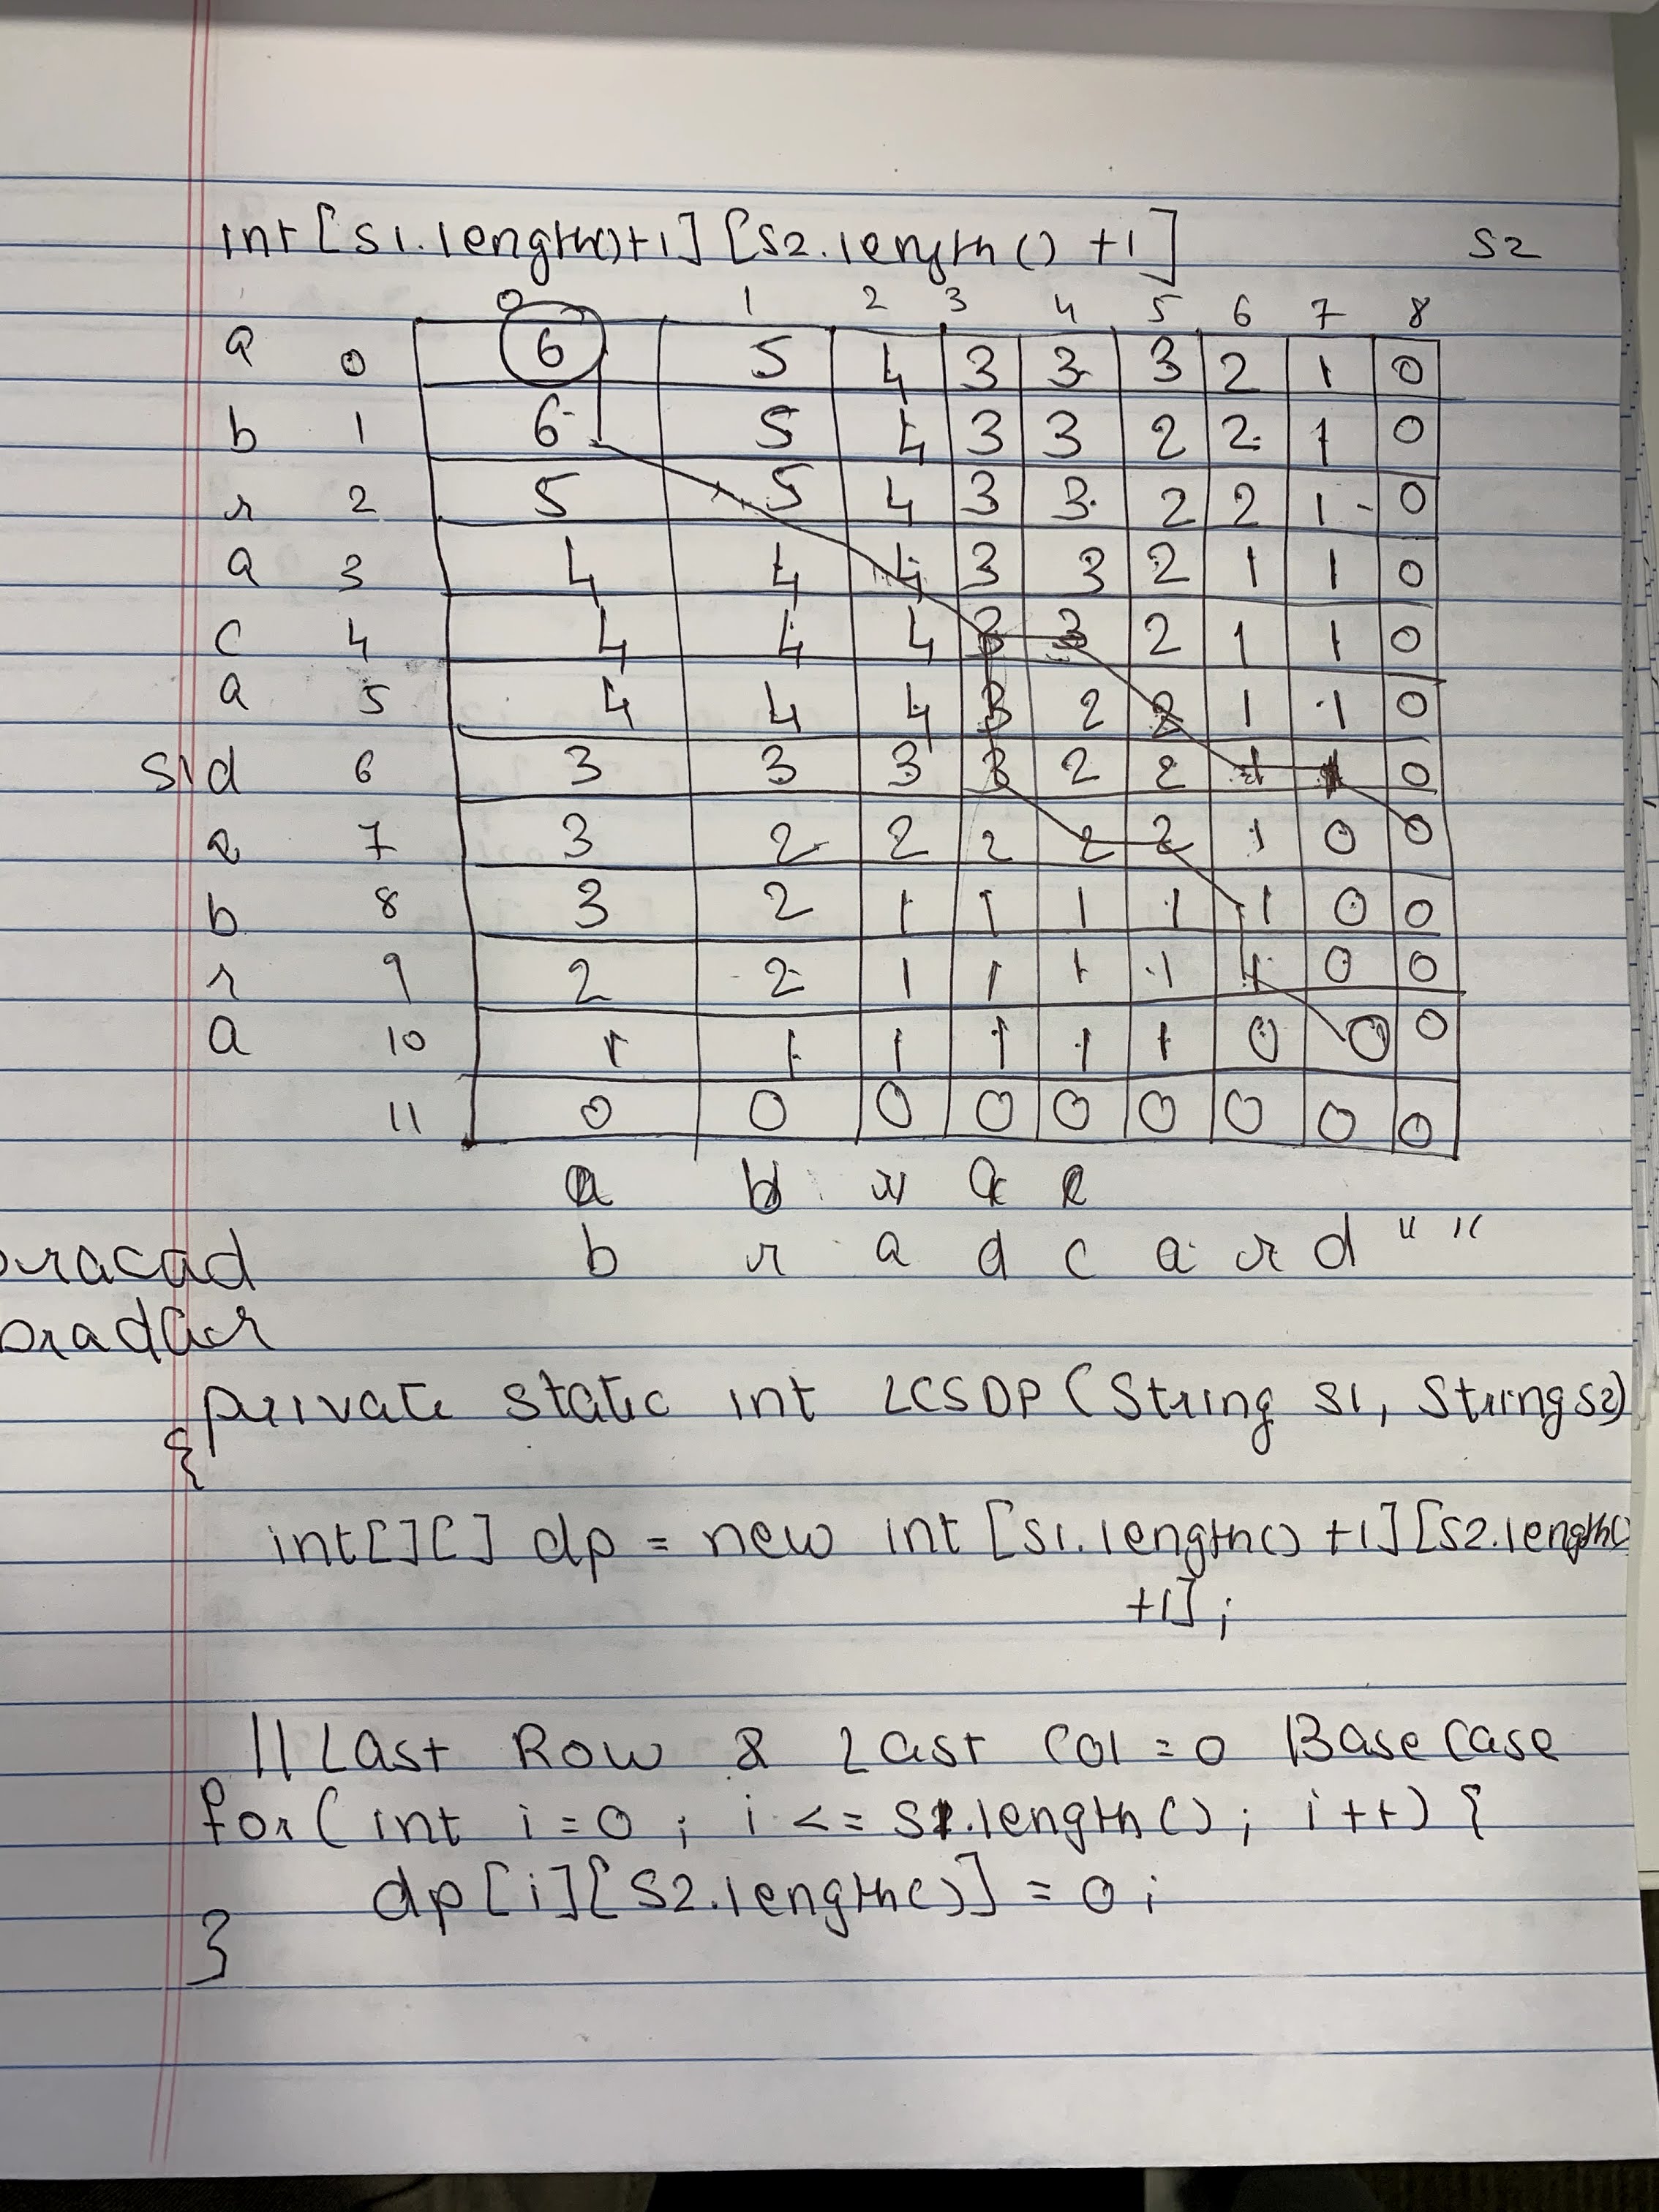 int[s1.length()+1][s2.length() +1] s2
0 1 2 3 4 5 6 7 8
a 0 6 5 4 3 3 3 2 1 0
b 1 6 5 4 3 3 2 2 1 0
r 2 5 5 4 3 3 2 2 1 0
a 3 4 4 4 3 3 2 1 1 0
c 4 4 4 4 3 3 2 1 1 0
a 5 4 4 4 3 2 2 1 1 0
s1 d 6 3 3 3 3 2 2 1 1 0
a 7 3 2 2 2 2 2 1 0 0
b 8 3 2 1 1 1 1 1 0 0
r 9 2 2 1 1 1 1 1 0 0
a 10 1 1 1 1 1 1 0 0 0
11 0 0 0 0 0 0 0 0 0
a b r a c
bracad b r a d c a r d " "
bradar
private static int LCSDP (String s1, String s2)
{
int[][] dp = new int [s1.length() +1][s2.length()
+1];
//Last Row & Last Col = 0 Base Case
for( int i = 0 ; i <= s1.length() ; i++) {
dp[i][s2.length()] = 0;
}